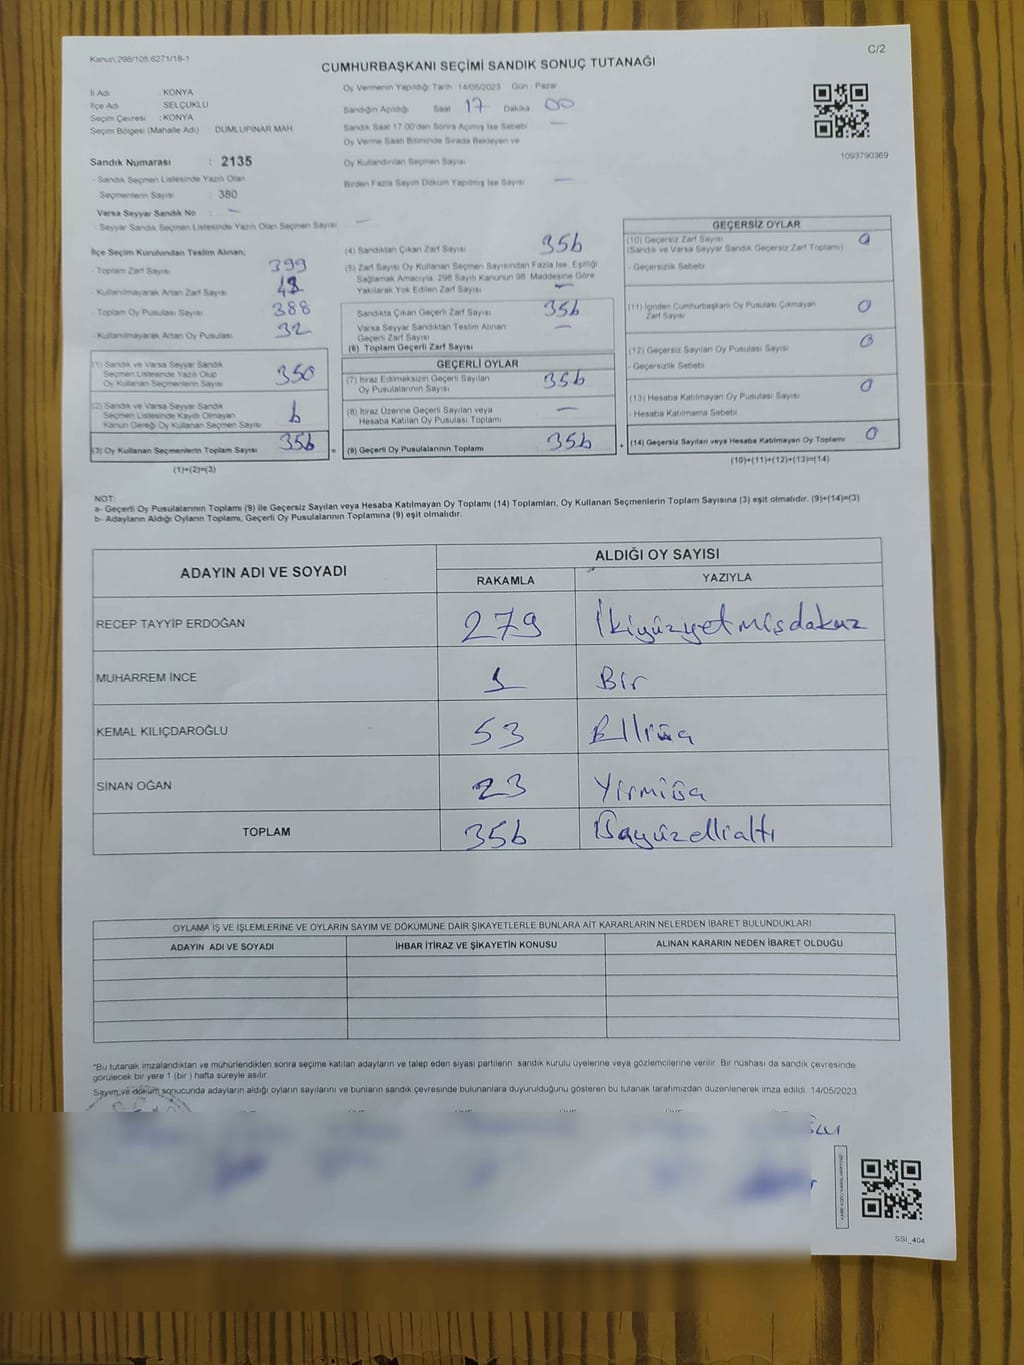 Kanun,298/105.6271/18-1
C/2
CUMHURBAŞKANI SEÇİMİ SANDIK SONUÇ TUTANAĞI
İl Adı KONYA
İlçe Adı SELÇUKLU
Seçim Çevresi : KONYA
Seçim Bölgesi (Mahalle Adı) DUMLUPINAR MAH
Sandık Numarası : 2135
- Sandık Seçmen Listesinde Yazılı Olan
Seçmenlerin Sayısı : 380
Varsa Seyyar Sandık No : –
- Seyyar Sandık Seçmen Listesinde Yazılı Olan Seçmen Sayısı –
Oy Vermenin Yapıldığı Tarih 14/05/2023 Gün : Pazar
Sandığın Açıldığı Saat 17 Dakika 00
Sandık Saat 17.00'den Sonra Açılmış İse Sebebi –
Oy Verme Saati Bitiminde Sırada Bekleyen ve
Oy Kullandırılan Seçmen Sayısı
Birden Fazla Sayım Döküm Yapılmış İse Sayısı –
1093790369
İlçe Seçim Kurulundan Teslim Alınan;
- Toplam Zarf Sayısı 399
- Kullanılmayarak Artan Zarf Sayısı
- Toplam Oy Pusulası Sayısı 388
- Kullanılmayarak Artan Oy Pusulası 32
(1) Sandık ve Varsa Seyyar Sandık
Seçmen Listesinde Yazılı Olup
Oy Kullanan Seçmenlerin Sayısı 350
(2) Sandık ve Varsa Seyyar Sandık
Seçmen Listesinde Kayıtlı Olmayan
Kanun Gereği Oy Kullanan Seçmen Sayısı 6
(3) Oy Kullanan Seçmenlerin Toplam Sayısı 356
(1)+(2)=(3)
(4) Sandıktan Çıkan Zarf Sayısı 356
(5) Zarf Sayısı Oy Kullanan Seçmen Sayısından Fazla İse, Eşitliği
Sağlamak Amacıyla, 298 Sayılı Kanunun 98. Maddesine Göre
Yakılarak Yok Edilen Zarf Sayısı –
Sandıkta Çıkan Geçerli Zarf Sayısı 356
Varsa Seyyar Sandıktan Teslim Alınan
Geçerli Zarf Sayısı –
(6) Toplam Geçerli Zarf Sayısı
GEÇERLİ OYLAR
(7) İtiraz Edilmeksizin Geçerli Sayılan
Oy Pusulalarının Sayısı 356
(8) İtiraz Üzerine Geçerli Sayılan veya
Hesaba Katılan Oy Pusulası Toplamı –
= (9) Geçerli Oy Pusulalarının Toplamı 356
GEÇERSİZ OYLAR
(10) Geçersiz Zarf Sayısı 0
(Sandık ve Varsa Seyyar Sandık Geçersiz Zarf Toplamı)
- Geçersizlik Sebebi
(11) İçinden Cumhurbaşkanı Oy Pusulası Çıkmayan
Zarf Sayısı 0
(12) Geçersiz Sayılan Oy Pusulası Sayısı 0
- Geçersizlik Sebebi
(13) Hesaba Katılmayan Oy Pusulası Sayısı 0
- Hesaba Katılmama Sebebi
+ (14) Geçersiz Sayılan veya Hesaba Katılmayan Oy Toplamı 0
(10)+(11)+(12)+(13)=(14)
NOT:
a- Geçerli Oy Pusulalarının Toplamı (9) ile Geçersiz Sayılan veya Hesaba Katılmayan Oy Toplamı (14) Toplamları, Oy Kullanan Seçmenlerin Toplam Sayısına (3) eşit olmalıdır. (9)+(14)=(3)
b- Adayların Aldığı Oyların Toplamı, Geçerli Oy Pusulalarının Toplamına (9) eşit olmalıdır.
ADAYIN ADI VE SOYADI
ALDIĞI OY SAYISI
RAKAMLA YAZIYLA
RECEP TAYYİP ERDOĞAN 279 İkiyüzyetmişdokuz
MUHARREM İNCE 1 Bir
KEMAL KILIÇDAROĞLU 53 Elliüç
SİNAN OĞAN 23 Yirmiüç
TOPLAM 356 Üçyüzellialtı
OYLAMA İŞ VE İŞLEMLERİNE VE OYLARIN SAYIM VE DÖKÜMÜNE DAİR ŞİKAYETLERLE BUNLARA AİT KARARLARIN NELERDEN İBARET BULUNDUKLARI
ADAYIN ADI VE SOYADI İHBAR İTİRAZ VE ŞİKAYETİN KONUSU ALINAN KARARIN NEDEN İBARET OLDUĞU
"Bu tutanak imzalandıktan ve mühürlendikten sonra seçime katılan adayların ve talep eden siyasi partilerin sandık kurulu üyelerine veya gözlemcilerine verilir. Bir nüshası da sandık çevresinde
görülecek bir yere 1 (bir ) hafta süreyle asılır.
Sayım ve döküm sonucunda adayların aldığı oyların sayılarını ve bunların sandık çevresinde bulunanlara duyurulduğunu gösteren bu tutanak tarafımızdan düzenlenerek imza edildi. 14/05/2023
SSİ_404